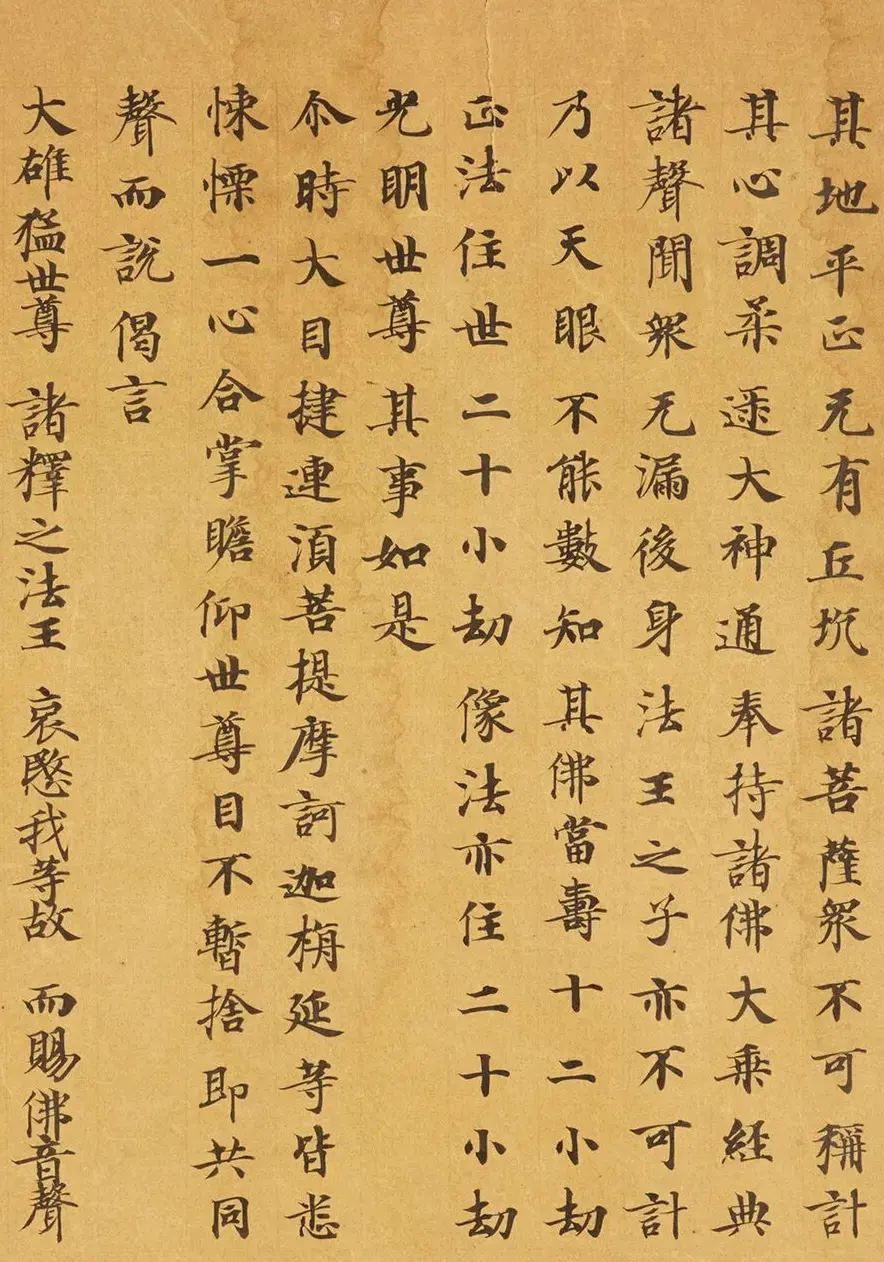 其地平正无有丘坑諸菩薩衆不可稱計
其心調柔逮大神通奉持諸佛大乘經典
諸聲聞衆无漏後身法王之子亦不可計
乃以天眼不能數知其佛當壽十二小劫
正法住世二十小劫像法亦住二十小劫
光明世尊其事如是
尒時大目揵連湏菩提摩訶迦栴延等皆悉
悚慄一心合掌瞻仰世尊目不暫捨即共同
聲而說偈言
大雄猛世尊 諸釋之法王 哀愍我等故 而賜佛音聲